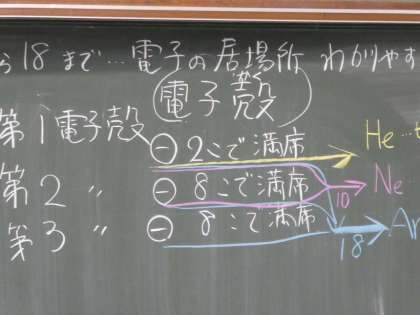 ら18まで…電子の居場所 わかりやす
(電子殻)
第1電子殻 ⊖2こで満席 He…
第2 〃 ⊖8こで満席 10 Ne…
第3 〃 ⊖8こで満席 18 Ar